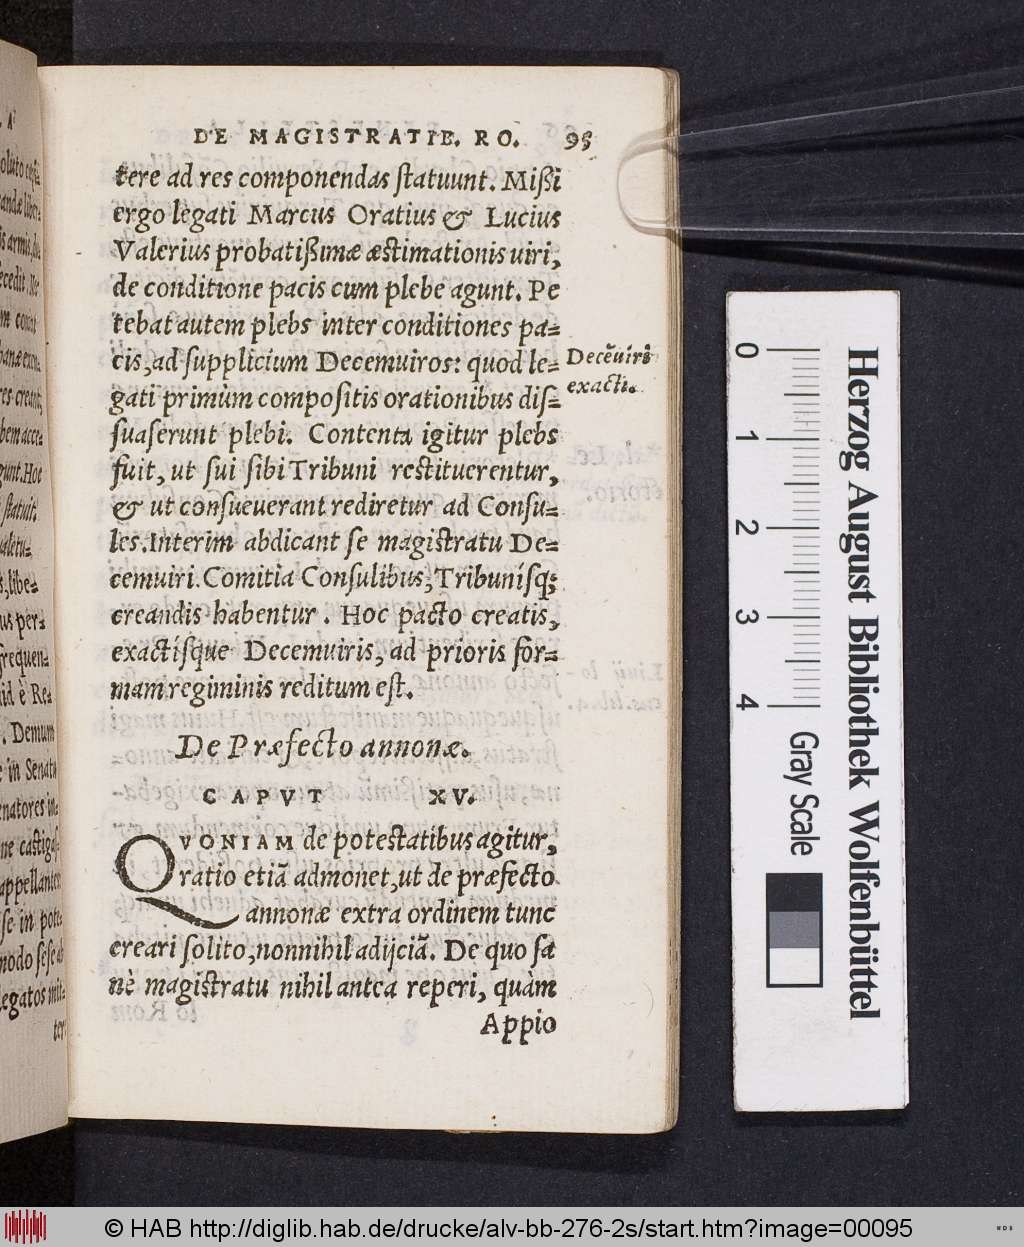 DE MAGISTRATIB. RO. 95
tere ad res componendas statuunt. Mißi
ergo legati Marcus Oratius & Lucius
Valerius probatißimæ æstimationis uiri,
de conditione pacis cum plebe agunt. Pe
tebat autem plebs inter conditiones pa=
cis, ad supplicium Decemuiros: quod le=
Decẽuiri
exacti.
gati primùm compositis orationibus dis=
suaserunt plebi. Contenta igitur plebs
fuit, ut sui sibi Tribuni restituerentur,
& ut consueuerant rediretur ad Consu=
les. Interim abdicant se magistratu De=
cemuiri. Comitia Consulibus, Tribunísq;
creandis habentur. Hoc pacto creatis,
exactísque Decemuiris, ad prioris for=
mam regiminis reditum est.
De Præfecto annonæ.
CAPVT XV.
QVONIAM de potestatibus agitur,
ratio etiã admonet, ut de præfecto
annonæ extra ordinem tunc
creari solito, nonnihil adijciã. De quo sa
nè magistratu nihil antea reperi, quàm
Appio
0 1 2 3 4
Gray Scale
Herzog August Bibliothek Wolfenbüttel
© HAB http://diglib.hab.de/drucke/alv-bb-276-2s/start.htm?image=00095